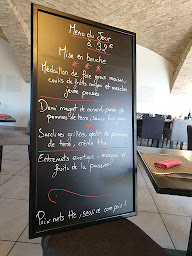 Menu du Jour
à 39€
Mise en bouche
Médaillon de foie gras maison,
coulis de fruits rouges et mesclun
jeune pousse.
Demi magret de canard, purée de
pommes de terre, sauce fruit rouge
Sardines grillées, gratin de pommes
de terre, crème
Entremets exotique, mangue et
fruits de la passion.
Prix nets ttc, service compris!